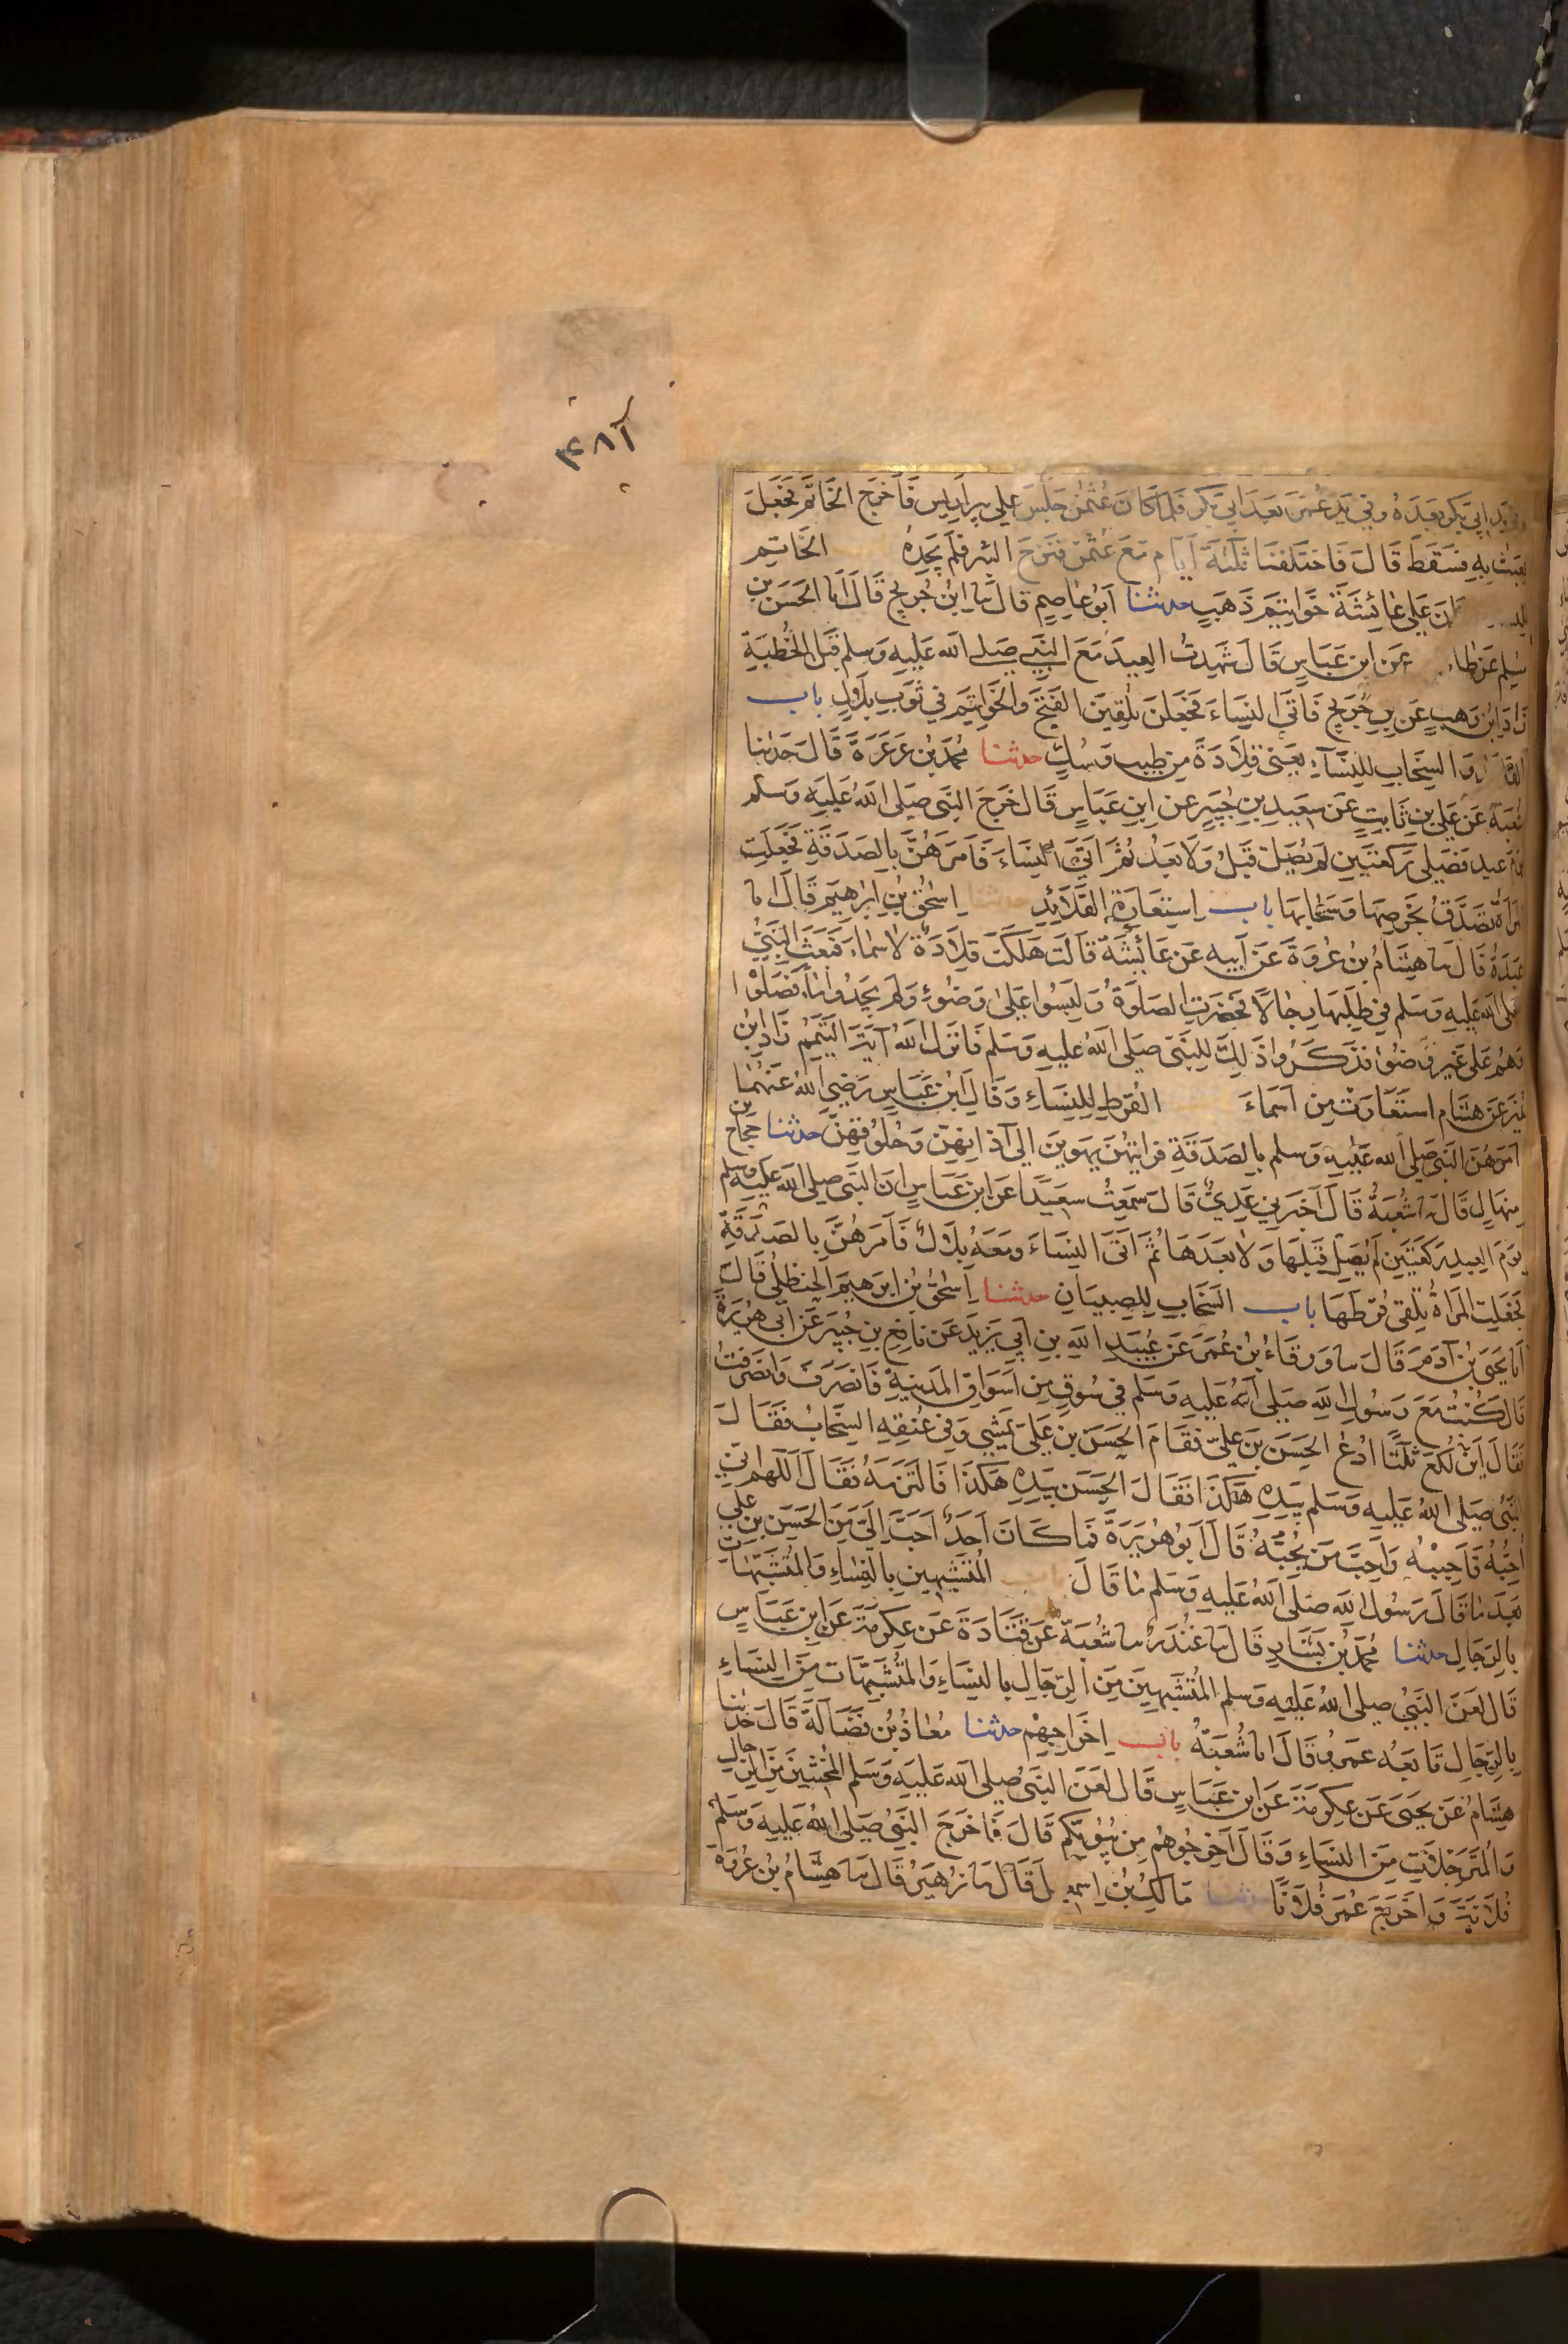 ٣٨٦
وفي يد ابي بكر بعده وفي يد عمر بعد ابي بكر فلما كان عثمن جلس على بير اريس فاخرج الخاتم فجعل
يعبث به فسقط قال فاختلفنا ثلثة ايام مع عثمن فننزح البئر فلم يجده الخاتم
للنساء وكان على عائشة خواتيم ذهب حدثنا ابو عاصم قال نا ابن جريج قال انا الحسن بن
مسلم عن طاوس عن ابن عباس قال شهدت العيد مع النبي صلى الله عليه وسلم قبل الخطبة
زاد ابن وهب عن بن جريج فاتى النساء فجعلن يلقين الفتخ والخواتيم في ثوب بلال باب
القلائد والسخاب للنساء يعنى قلادة من طيب وسك حدثنا محمد بن عرعرة قال حدثنا
شعبة عن عدي بن ثابت عن سعيد بن جبير عن ابن عباس قال خرج النبي صلى الله عليه وسلم
يوم عيد فصلى ركعتين لم يصل قبل ولا بعد ثم اتى النساء فامرهن بالصدقة فجعلت
المرأة تصدق بخرصها وسخابها باب استعارة القلائد حدثنا اسحق بن ابرهيم قال انا
عبدة قال نا هشام بن عروة عن ابيه عن عائشة قالت هلكت قلادة لاسماء فبعث النبي
صلى الله عليه وسلم في طلبها رجالا فحضرت الصلوة وليسوا على وضوء ولم يجدوا ماء فصلوا
وهم على غير وضوء فذكروا ذلك للنبي صلى الله عليه وسلم فانزل الله آية التيمم زاد ابن
نمير عن هشام استعارت من اسماء القرط للنساء وقال ابن عباس رضي الله عنهما
امرهن النبي صلى الله عليه وسلم بالصدقة فرايتهن يهوين الى آذانهن وحلوقهن حدثنا حجاج بن
منهال قال نا شعبة قال اخبرني عدي قال سمعت سعيدا عن ابن عباس ان النبي صلى الله عليه وسلم
يوم العيد ركعتين لم يصل قبلها ولا بعدها ثم اتى النساء ومعه بلال فامرهن بالصدقة
فجعلت المراة تلقي قرطها باب السخاب للصبيان حدثنا اسحق بن ابرهيم الحنظلي قال
انا يحيى بن آدم قال نا ورقاء بن عمر عن عبيد الله بن ابي يزيد عن نافع بن جبير عن ابي هريرة
قال كنت مع رسول الله صلى الله عليه وسلم في سوق من اسواق المدينة فانصرف وانصرفت
فقال اين لكع ثلثا ادع الحسن بن علي فقام الحسن بن علي يمشي وفي عنقه السخاب فقال
النبي صلى الله عليه وسلم بيده هكذا فقال الحسن بيده هكذا فالتزمه فقال اللهم اني
احبه فاحببه واحب من يحبه قال ابو هريرة فما كان احد احب الي من الحسن بن علي
بعد ما قال رسول الله صلى الله عليه وسلم ما قال باب المتشبهين بالنساء والمتشبهات
بالرجال حدثنا محمد بن بشار قال نا غندر نا شعبة عن قتادة عن عكرمة عن ابن عباس
قال لعن النبي صلى الله عليه وسلم المتشبهين من الرجال بالنساء والمتشبهات من النساء
بالرجال تابعه عمرو قال انا شعبة باب اخراجهم حدثنا معاذ بن فضالة قال حدثنا
هشام عن يحيى عن عكرمة عن ابن عباس قال لعن النبي صلى الله عليه وسلم المخنثين من الرجال
والمترجلات من النساء وقال اخرجوهم من بيوتكم قال فاخرج النبي صلى الله عليه وسلم
فلانة واخرج عمر فلانا حدثنا مالك بن اسمعيل قال نا زهير قال نا هشام بن عروة